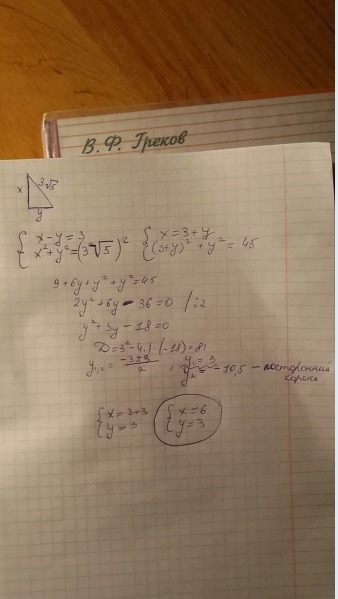 В. Ф. Греков
x 3√5
y
{ x - y = 3 { x = 3 + y
{ x² + y² = (3√5)² { (3+y)² + y² = 45
9 + 6y + y² + y² = 45
2y² + 6y - 36 = 0 /:2
y² + 3y - 18 = 0
D = 3² - 4·1·(-18) = 81
y₁,₂ = (-3±9)/2 , y₁ = 3
y₂ = -10,5 - посторонний
корень
{ x = 3+3 { x = 6
{ y = 3 { y = 3